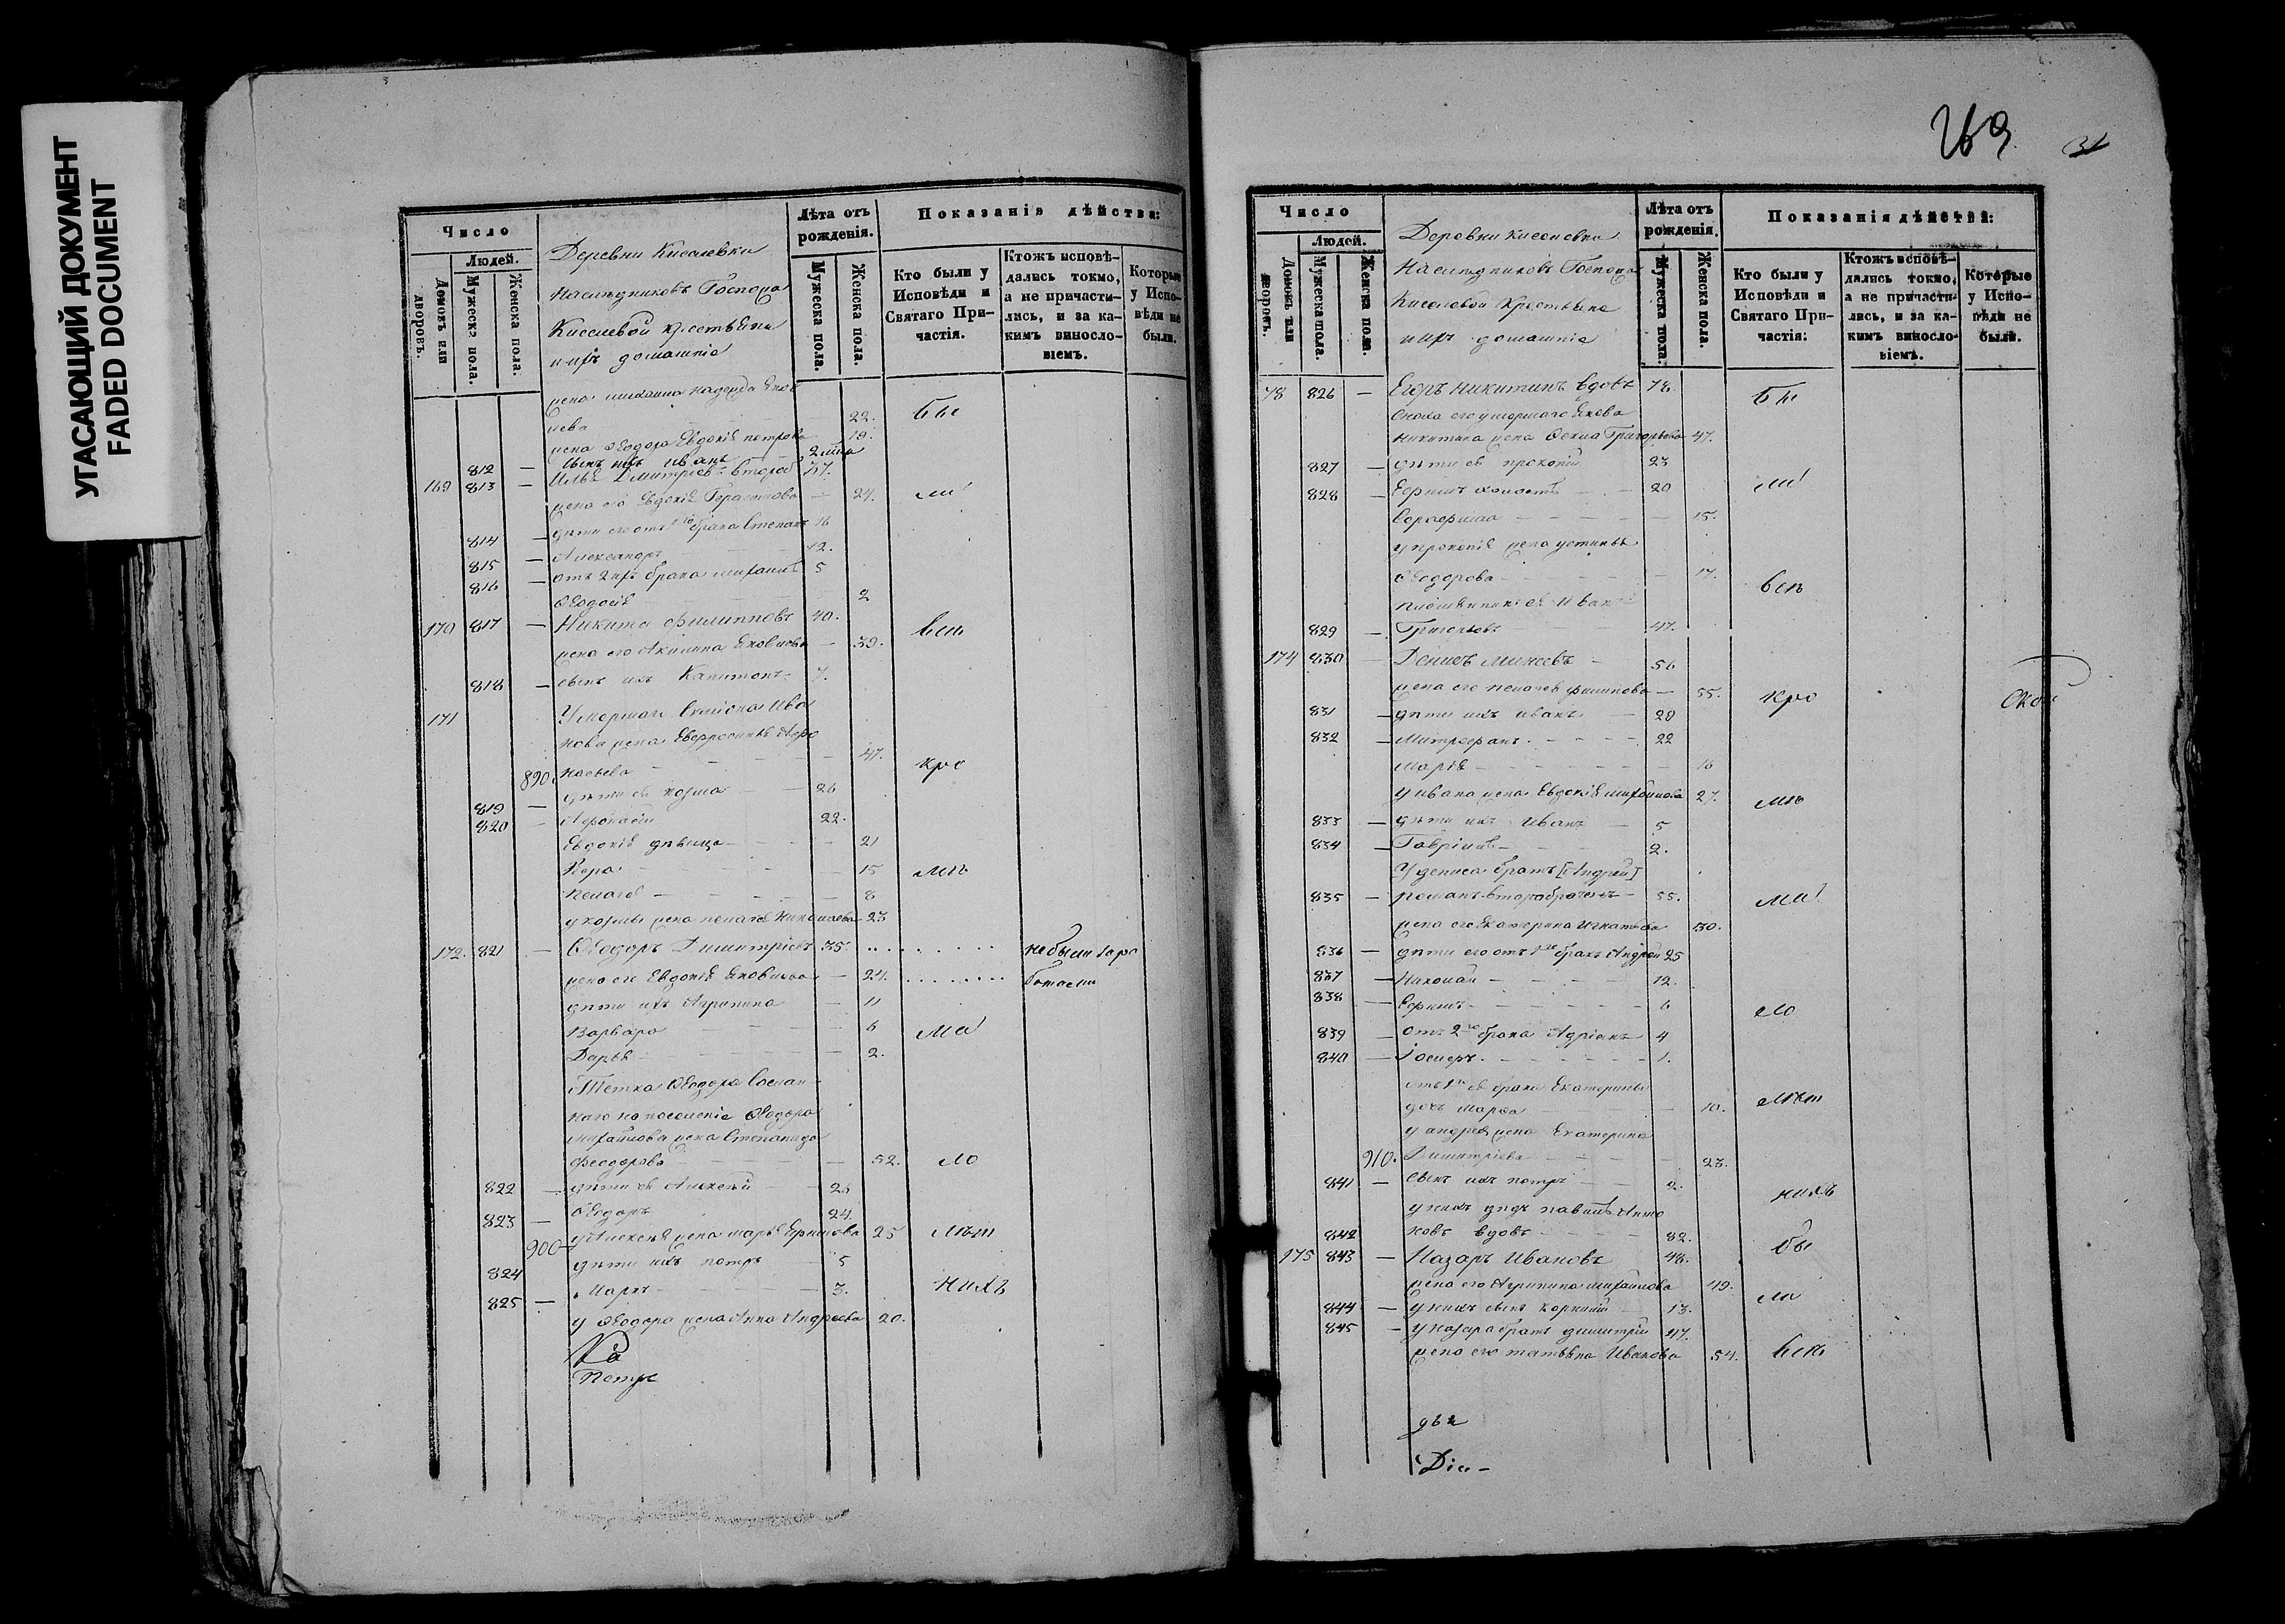 УГАСАЮЩИЙ ДОКУМЕНТ
FADED DOCUMENT
269
31
Число
Людей.
Домовъ или дворовъ.
Мужеска пола.
Женска пола.
Деревни Киселевки
наследниковъ Госпожа
Киселевой крестьяне
и ихъ домашніе
Лѣта отъ рожденія.
Мужеска пола.
Женска пола.
Показанія дѣйства:
Кто были у Исповѣди и Святаго При-частія.
Ктожъ исповѣ-дались токмо, а не причасти-лись, и за ка-кимъ винослo-віемъ.
Которые у Испо-вѣди не были.
жена михаила надежда Яков
лева 22. бы
жена Ѳеодора Евдокія петрова 19.
812 — сынъ ихъ иванъ
169 813 — Илья Дмитріевъ 37.
жена его Евдокія Герасимова — 24. ли
814 — дѣти его отъ 1го брака Степанъ 16
815 — Александръ 12.
816 — отъ 2го брака михаилъ 5
Ѳеодосія 2
170 817 — Никита филипповъ 40. всѣ
жена его Акилина Яковлева — 39.
818 — сынъ ихъ Капитонъ 7.
171 Умершаго Ива
нова жена Евфросинія Афо
890. насьева 47. кро
819 — дѣти ея козма 26
820 — Афонасій 22.
Евдокія дѣвица 21
Вера 15 мѣ
пелагея 8
у козмы жена пелагея Николаева 23
172. 821 — Ѳеодоръ Димитріевъ 35. не были за ра
жена его Евдокія Яковлева — 24. ботами
дѣти ихъ Агрипина — 11
Варвара 6 ма
Дарья 2.
Тетка Ѳеодора Сослан
наго на поселеніе Ѳеодора
михайлова жена Степанида
феодорова 52. ло
822 — дѣти ея Алексѣй 26
823 — Ѳеодоръ 24
900 у Алексея жена марья Ефимова 25 лѣт
824 дѣти ихъ петръ 5
825 — Маркъ 3. нихъ
у Ѳеодора жена Анна Андреева 20.
Петръ
Число
Людей.
Домовъ или дворовъ.
Мужеска пола.
Женска пола.
Деревни Киселевки
наследниковъ Госпожа
Киселевой крестьяне
ихъ домашніе
Лѣта отъ рожденія.
Мужеска пола.
Женска пола.
Показанія дѣйства:
Кто были у Исповѣди и Святаго При-частія:
Ктожъ исповѣ-дались токмо, а не причасти-лись, и за ка-кимъ винослo-віемъ.
Которые у Испо-вѣди не были.
78 826 — Егоръ никитинъ вдовъ 78 бы
сноха его умершаго Якова
никитина жена Григорьева 47.
827 — дѣти ея прокопій 23
828 — Ефимъ холостъ 20 ли
15.
у прокопія жена устинья
Ѳеодорова 17. всѣ
племянникъ ея Иванъ
829 — Григорьевъ 47.
174 830 — Денисъ Михеевъ 56
жена его пелагея филипова — 55. кро
831 — дѣти ихъ иванъ 29
832 — Митрофанъ 22
Марія 16
у ивана жена Евдокія михайлова 27. мѣ
833 — дѣти ихъ Иванъ 5
834 — Гавріилъ 2.
У дениса братъ [Андрей]
835 — романъ второбраченъ 55. ма
жена его Екатерина Игнатьева 30.
836 — дѣти его отъ 1го брака Андрей 25
837 — Николай 12.
838 — Ефимъ 6 ло
839 — отъ 2го брака Адріанъ 4
840 — Іосифъ 1.
отъ 1го ея брака Екатерины
дочь марфа 10. лѣт
у андрея жена Екатерина
910. Димитріева 23.
841 — сынъ ихъ петръ 2. нихъ
у нихъ дядя павелъ Анто
842 новъ вдовъ 82.
175 843 — Назаръ Ивановъ 48. бы
жена его Агрипина михайлова 49. ли
844 — у нихъ сынъ корнилій 13.
845 — у назара братъ димитрій 47.
жена его татьяна Иванова 54. всѣ
два
Діа-